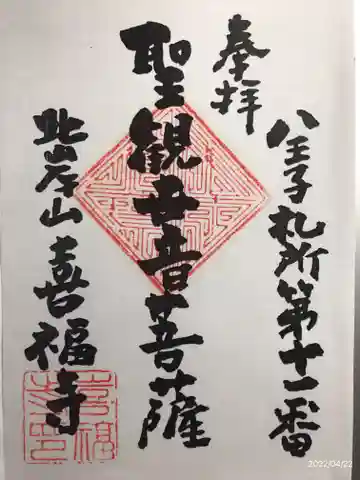 八王子札所第十一番
奉拝
聖観世音菩薩
山喜福寺
2022/04/22